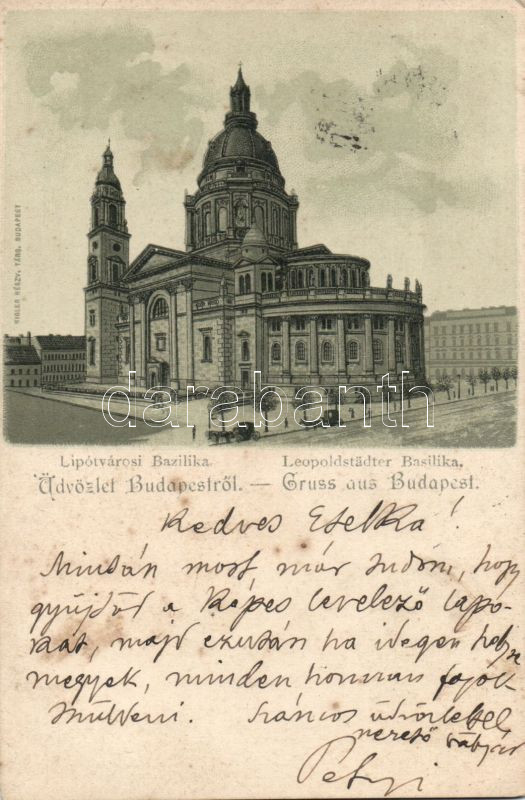 RIGLER RÉSZV. TÁRS. BUDAPEST
darabanth
Lipótvárosi Bazilika. Leopoldstädter Basilika.
Üdvözlet Budapestről. — Gruss aus Budapest.
Kedves Etelka!
Miután most már tudom, hogy
gyűjtöd a képes levelező lapo-
kat, majd ezután ha idegen helyre
megyek, minden honnan fogok
küldeni. üdvözlettel
szerető bátyád